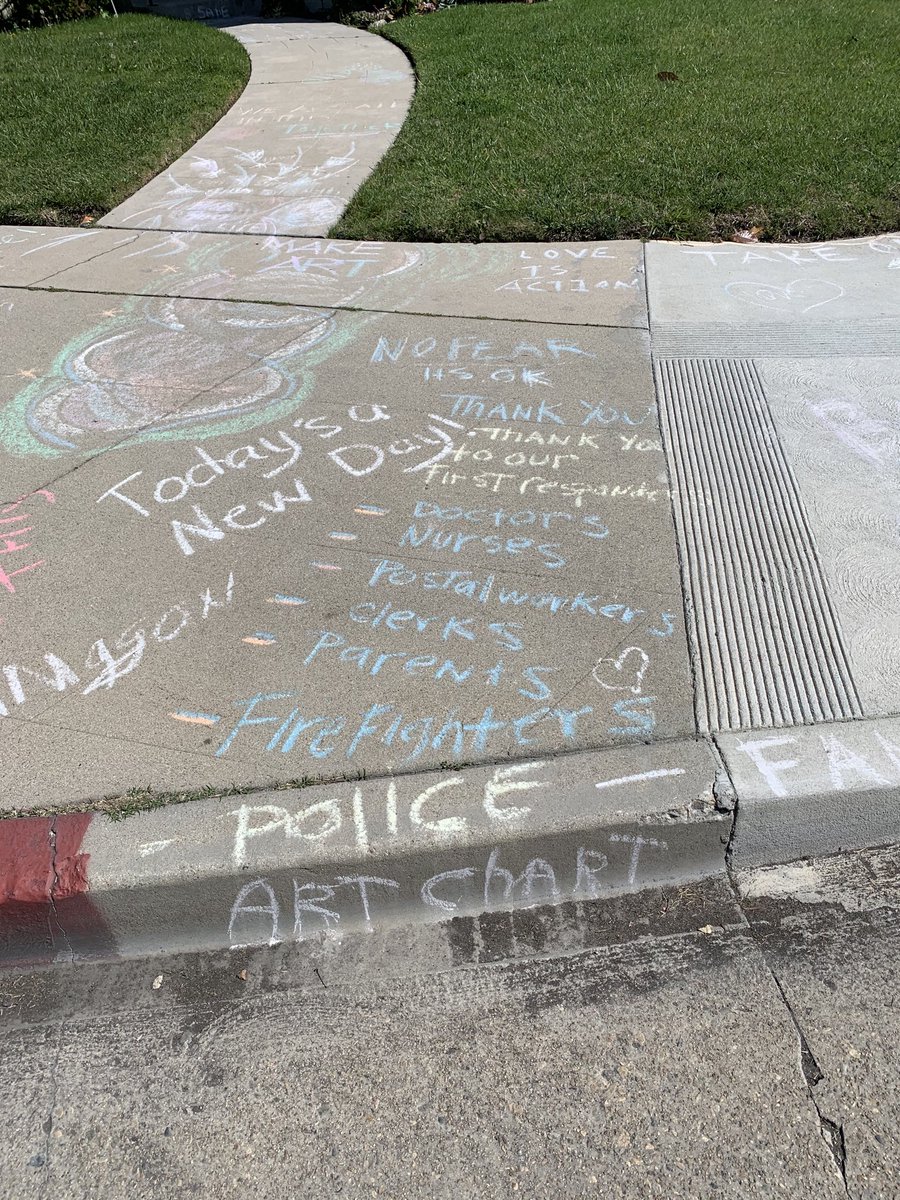 SAFE
WE ALL
Together
MAKE
ART
LOVE
IS
ACTION
TAKE
NO FEAR
ITS OK
THANK YOU
THANK YOU
to our
first responders
Today's u
New Day
- Doctors
- Nurses
- Postal workers
- clerks
- Parents
- FireFighters
Mason
- POLICE -
ART CHART
FAM